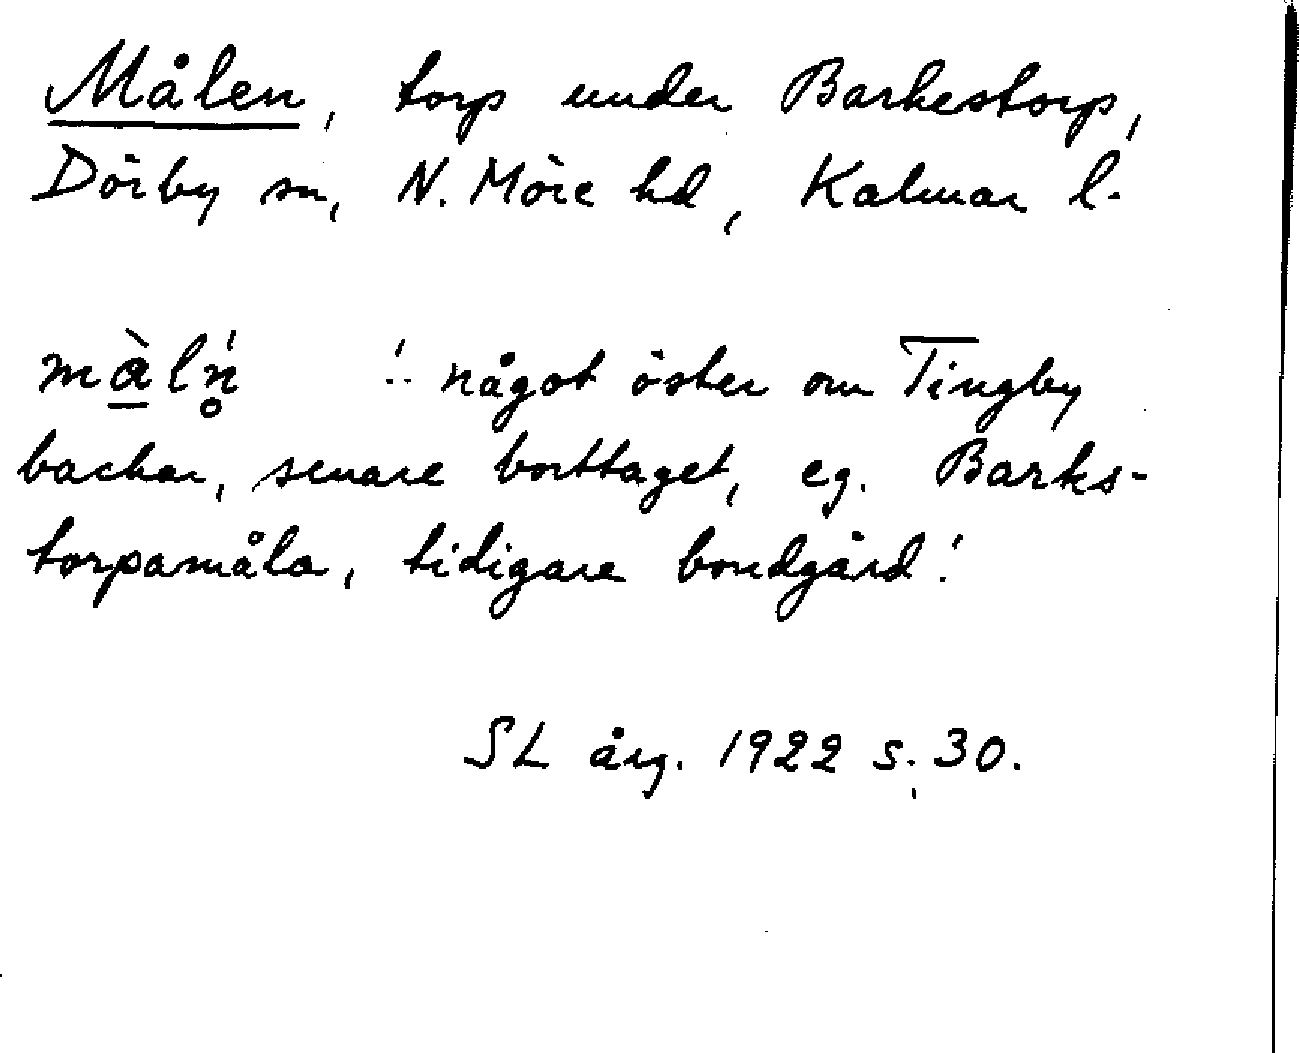 Målen, torp under Barkestorp,
Dörby sn, N. Möre hd, Kalmar l.
màlń̥ ! något öster om Tingby
backar, senare borttaget, eg. Barks-
torpamåla, tidigare bondgård!
SL årg. 1922 s. 30.